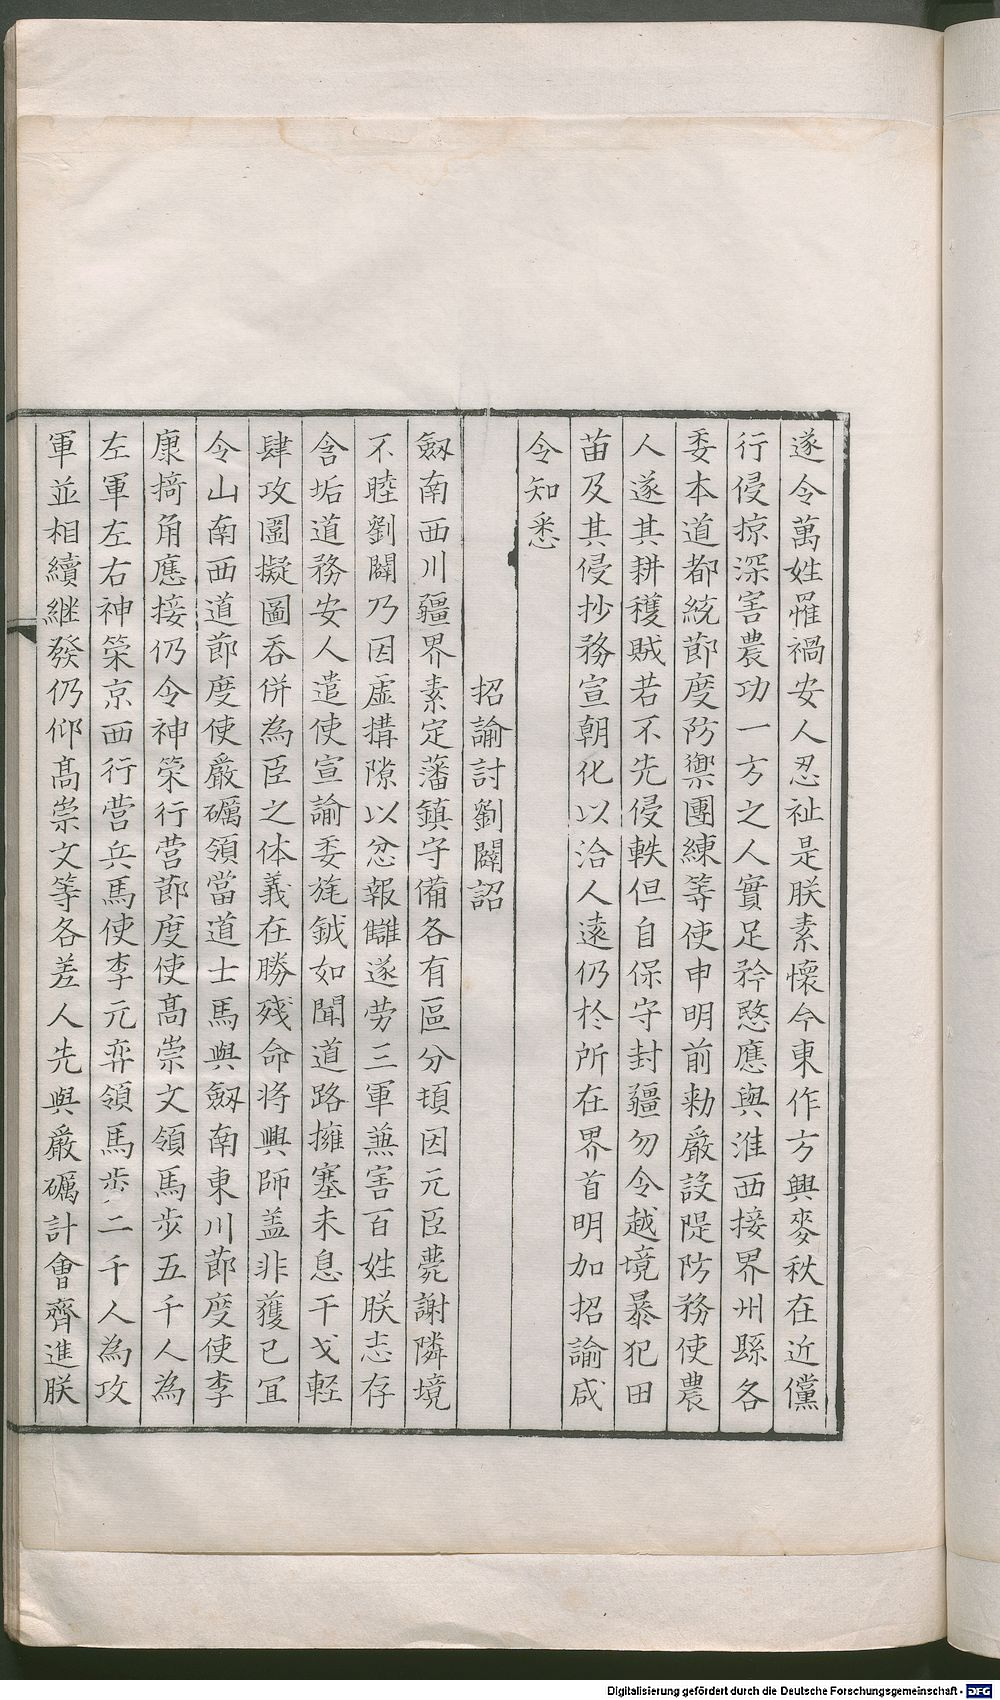 遂令萬姓罹禍安人忍祉是朕素懷今東作方興麥秋在近儻
行侵掠深害農功一方之人實足矜愍應與淮西接界州縣各
委本道都統節度防禦團練等使申明前勑嚴設隄防務使農
人遂其耕穫賊若不先侵軼但自保守封疆勿令越境暴犯田
苗及其侵抄務宣朝化以洽人遠仍於所在界首明加招諭咸
令知悉
招諭討劉闢詔
劔南西川疆界素定藩鎮守備各有區分頃因元臣薨謝隣境
不睦劉闢乃因虛搆隙以忿報讎遂勞三軍兼害百姓朕志存
含垢道務安人遣使宣諭委旄鉞如聞道路擁塞未息干戈輕
肆攻圍擬圖吞併為臣之体義在勝殘命将興師盖非獲已冝
令山南西道節度使嚴礪領當道士馬與劔南東川節度使李
康掎角應接仍令神策行營節度使高崇文領馬歩五千人為
左軍左右神策京西行營兵馬使李元弈領馬歩二千人為攻
軍並相續継發仍仰髙崇文等各差人先與嚴礪計會齊進朕
Digitalisierung gefördert durch die Deutsche Forschungsgemeinschaft - DFG